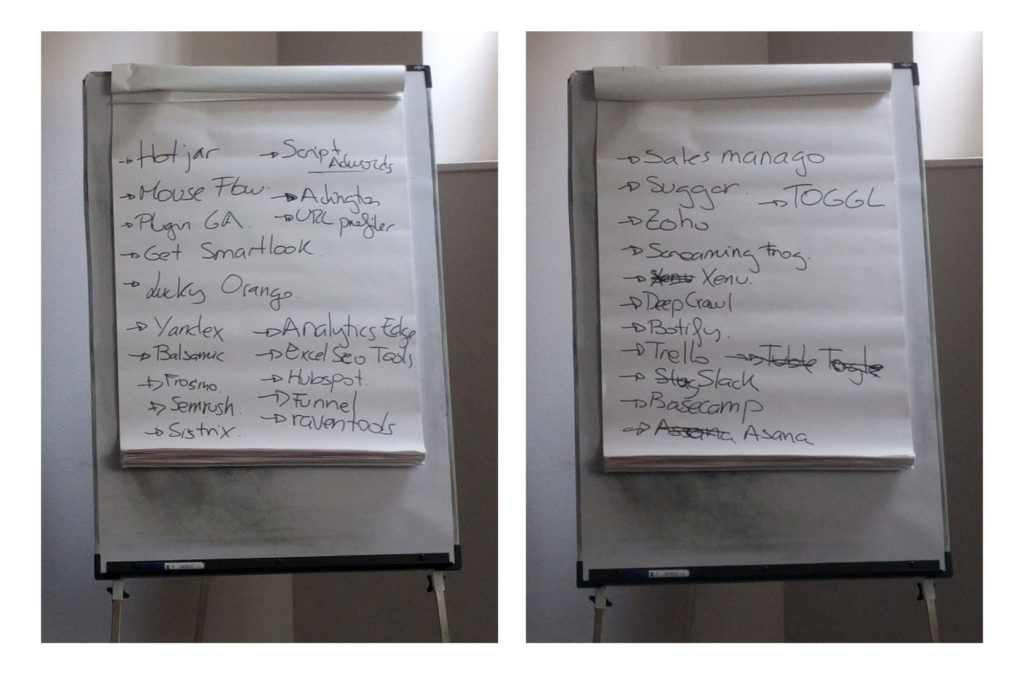 → Hotjar
→ Mouse Flow.
→ Plugin GA.
→ Get Smartlook.
→ Lucky Orange.
→ Yandex
→ Balsamic
→ Semrush.
→ Sistrix.
→ Script Adwords
→ URL profiler
→ Analytics Edge
→ Excel Seo Tools
→ Hubspot
→ Funnel
→ raventools
→ Sales manago
→ Suggar.
→ TOGGL
→ Zoho
→ Screaming frog.
→ Xenu.
→ DeepCrawl
→ Botify.
→ Trello
→ Slack
→ Basecamp
→ Asana